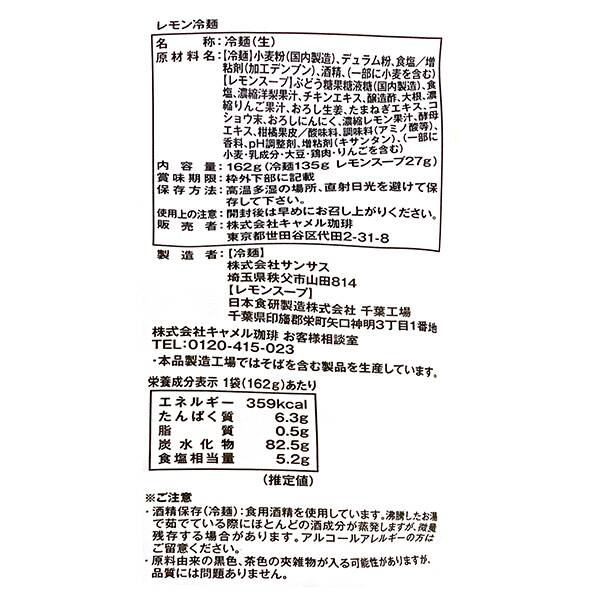 レモン冷麺
名称:冷麺(生)
原材料名:【冷麺】小麦粉(国内製造)、デュラム粉、食塩/増
粘剤(加工デンプン)、酒精、(一部に小麦を含む)
【レモンスープ】ぶどう糖果糖液糖(国内製造)、食
塩、濃縮洋梨果汁、チキンエキス、醸造酢、大根、濃
縮りんご果汁、おろし生姜、たまねぎエキス、コ
ショウ末、おろしにんにく、濃縮レモン果汁、酵母
エキス、柑橘果皮/酸味料、調味料(アミノ酸等)、
香料、pH調整剤、増粘剤(キサンタン)、(一部に
小麦・乳成分・大豆・鶏肉・りんごを含む)
内容量:162g(冷麺135g レモンスープ27g)
賞味期限:枠外下部に記載
保存方法:高温多湿の場所、直射日光を避けて保
存して下さい。
使用上の注意:開封後は早めにお召し上がりください。
販売者:株式会社キャメル珈琲
東京都世田谷区代田2-31-8
製造者:【冷麺】
株式会社サンサス
埼玉県秩父市山田814
【レモンスープ】
日本食研製造株式会社 千葉工場
千葉県印旛郡栄町矢口神明3丁目1番地
株式会社キャメル珈琲 お客様相談室
TEL:0120-415-023
・本品製造工場ではそばを含む製品を生産しています。
栄養成分表示 1袋(162g)あたり
エネルギー 359kcal
たんぱく質 6.3g
脂質 0.5g
炭水化物 82.5g
食塩相当量 5.2g
(推定値)
※ご注意
・酒精保存(冷麺):食用酒精を使用しています。沸騰したお湯
で茹でている際にほとんどの酒成分が蒸発しますが、微量
残存する場合があります。アルコールアレルギーの方は
ご留意ください。
・原料由来の黒色、茶色の夾雑物が入る可能性がありますが、
品質には問題ありません。